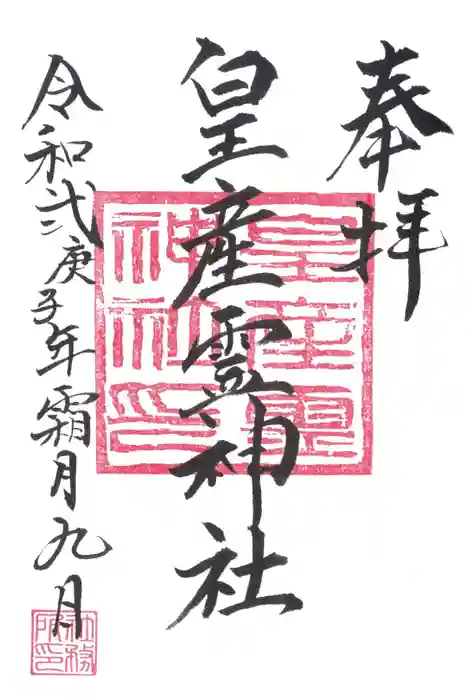 奉拝
皇産霊神社
令和弐庚子年霜月九月
皇産霊
神社印
社務
所印